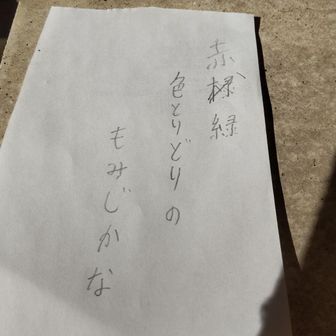 赤橙緑
色とりどりの
もみじかな